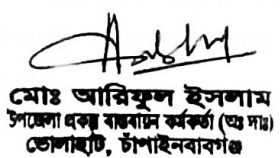 মোঃ আরিফুল ইসলাম
উপজেলা প্রকল্প বাস্তবায়ন কর্মকর্তা (অঃ দাঃ)
ভোলাহাট, চাঁপাইনবাবগঞ্জ